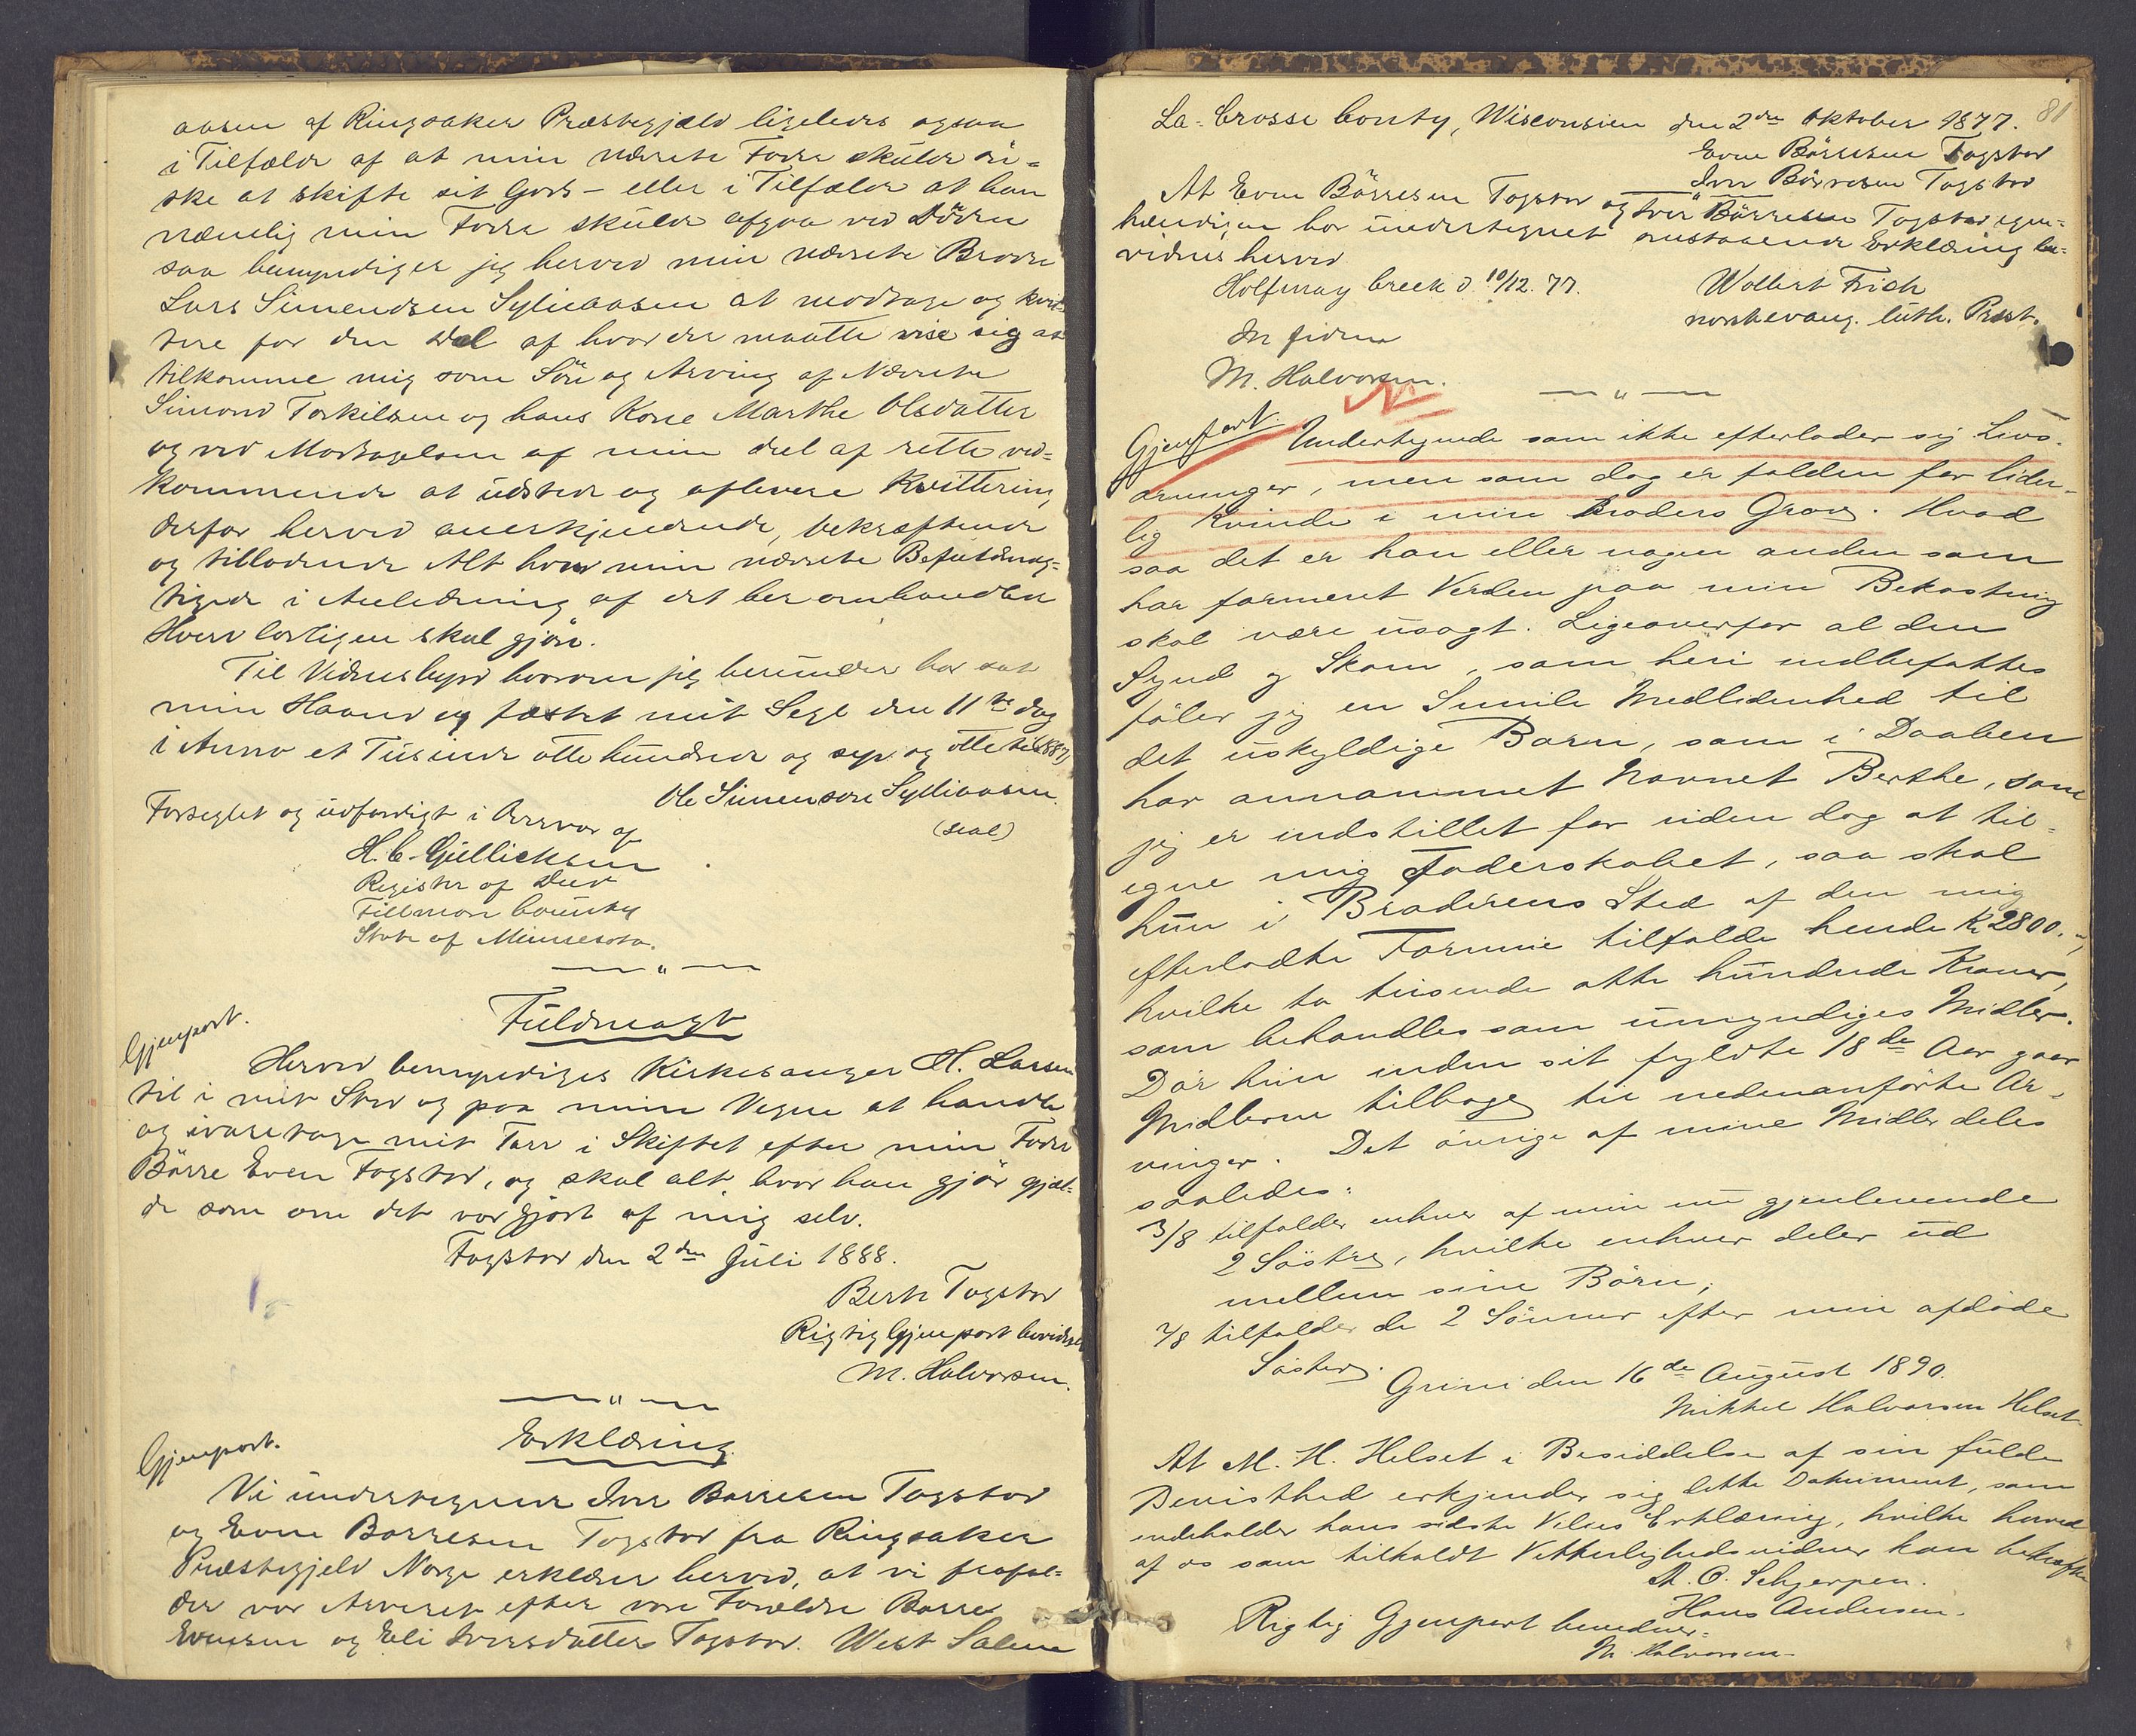 aasen af Ringsaker Præstegjæld ligeledes ogsaa
i Tilfælde af at min nævnte Fader skulde øn=
ske at skifte sit Gods - eller i Tilfælde at han
næmlig min Fader skulde afgaa ved Døden
saa bemyndiger jeg herved min nævnte Broder
Lars Simendsen Sylliaasen at modtage og kvit=
tere for den Del af hvad der maatte vise sig at
tilkomme mig som Søn og Arving af Nævnte
Simond Torkilsen og hans Kone Marthe Olsdatter
og ved Modtagelsen af min del af rette ved=
kommende at udstede og aflevere Kvittering
derfor herved anerkjendende, bekræftende
og tilladende Alt hvad min nævnte Befuldmæg=
tigede i Anledning af det her omhandlede
Hverv lovligen skal gjøre.
Til Vidnesbyrd hvorom jeg herunder har sat
min Haand og fæstet mit Segl den 11te dag
i Anno et Tusinde otte hundrede og syv og otteti (1887)
Ole Simensone Sylliaasen.
(seal)
Forseglet og udfærdiget i Nærvær af
H. C. Gullickson
Register of Deed
Fillmore County
State of Minnesota.
Gjenpart.
Fuldmagt
Herved bemyndiges Kirkesanger H. Larsen
til i mit Sted og paa mine Vegne at handle
og ivaretage mit Tarv i Skiftet efter min Fader
Börre Even Fogstad, og skal alt hvad han gjør gjæl=
de som om det var gjort af mig selv.
Fogstad den 2den Juli 1888.
Berte Fogstad
Rigtig Gjenpart bevidnes
M. Halvorsen.
Gjenpart.
Erklæring.
Vi undertegnede Iver Børresen Fogstad
og Even Børresen Fogstad fra Ringsaker
Præstegjeld Norge erklærer herved, at vi frafal=
der vor Arveret efter vore Forældre Børre
Evensen og Eli Iversdatter Fogstad. West Salem
81
La-Crosse Conty, Wisconsien den 2den Oktober 1877.
Even Börresen Fogstad
Iver Börresen Fogstad
At Even Börresen Fogstad og Iver Börresen Fogstad egen=
hændigen har undertegnet omstaaende Erklæring be=
vidnes herved
Holfway Creek d 10/12. 77.
Wollert Frich
norskevang. luth. Prest.
In fidem
M. Halvorsen.
Gjenpart.
Undertegnede som ikke efterlader sig Livs=
arvinger, men som dog er falden for lider=
lig Kvinde i min Broders Grav. Hvad
saa det er han eller nogen anden som
har formeret Verden paa min Bekostning
skal være usagt. Ligeoverfor al den
Synd og Skam, som heri indbefattes
føler jeg en Smule Medlidenhed til
det uskyldige Barn, som i Daaben
har annammet Navnet Berthe, som
jeg er indstillet for uden dog at til=
egne mig Faderskabet, saa skal
hun i Broderens Sted af den mig
efterladte Formue tilfalde hende Kr 2800.-,
hvilke to tusende otte hundrede Kroner,
som behandles som umyndiges Midler.
Dør hun inden sit fyldte 18de Aar gaar
Midlerne tilbage til nedenanførte Ar=
vinger. Det øvrige af mine Midler deles
saaledes:
3/8 tilfalder enhver af min nu gjenlevende
2 Søstre, hvilke enhver deler ud
mellem sine Børn,
2/8 tilfalder de 2 Sønner efter min afdøde
Søster.
Grini den 16de August 1890.
Mikkel Halvorsen Helset
At M. H. Helset i Besiddelse af sin fulde
Bevisthed erkjender sig dette Dokument, som
indeholder hans sidste Vilies Erklæring, hvilke herved
af os som tilkaldt Vitterlighedsvidner kan bekræfte
A. O. Schjerpen.
Hans Andersen.
Rigtig Gjenpart bevidner:
M. Halvorsen.